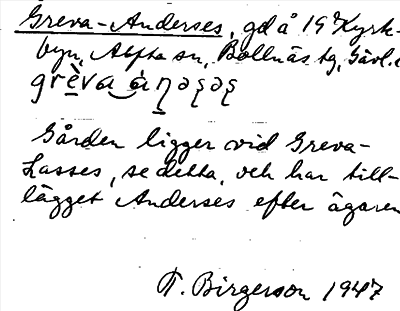 Greva-Anderses, gd å 19² Kyrk-
byn, Alfta sn, Bollnäs tg, Gävl.
grèva ánəşəş
Gården ligger vid Greva-
Lasses, se detta, och har till-
lägget Anderses efter ägaren
T. Birgerson 1947